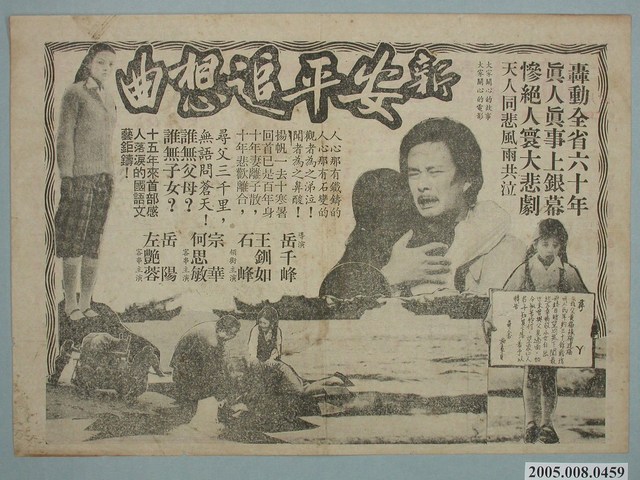 新安平追想曲
轟動全省六十年
眞人眞事上銀幕
慘絕人寰大悲劇
天人同悲風雨共泣
大家關心的故事
大家關心的電影
人心那有鐵鑄的
人心那有石變的
觀者為之涕泣!
聞者為之鼻酸!
揚帆一去十寒暑
回首已是百年身
十年妻離子散,
十年悲歡離合,
尋父三千里,
無語問蒼天!
誰無父母?
誰無子女?
十五年來首部感
人落淚的國語文
藝鉅鑄!
導演
岳千峰
王釧如
石峰
領銜主演
宗華
何思敏
客串主演
岳陽
左艷蓉
客串主演
尋人
2005.008.0459